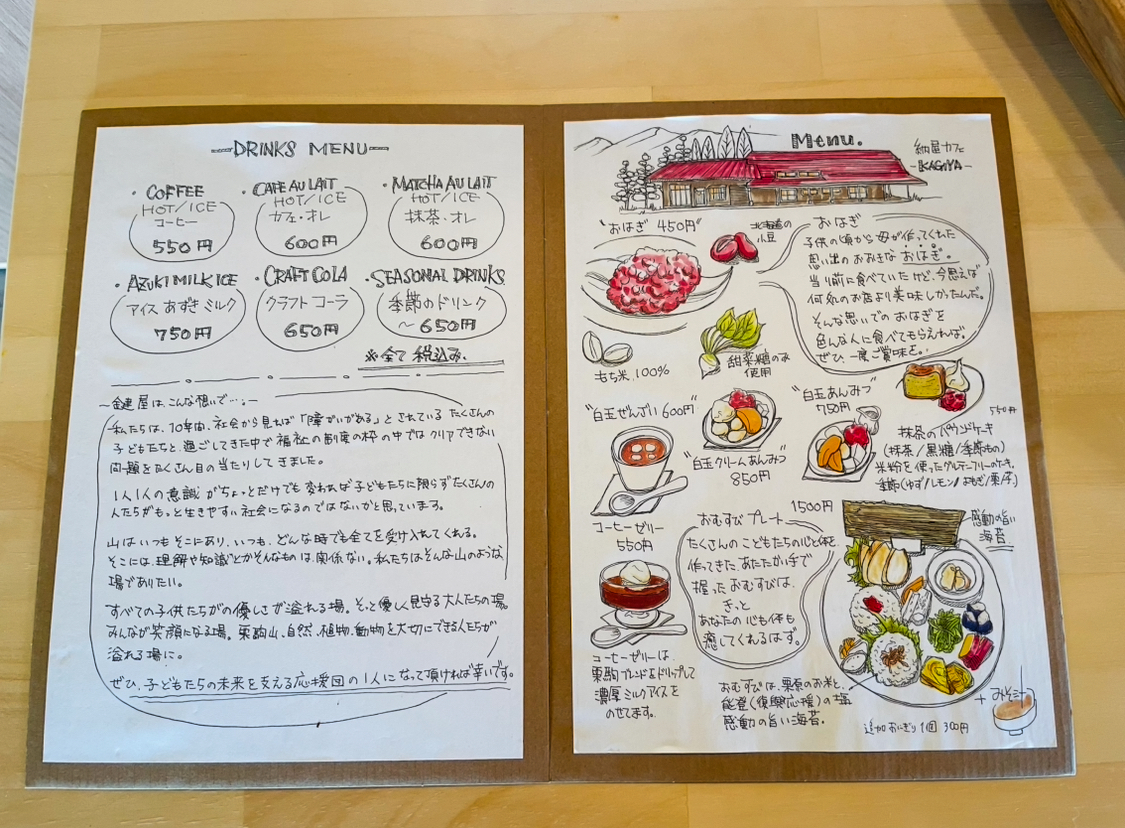 DRINKS MENU
・COFFEE
HOT/ICE
コーヒー
550円
・CAFE AU LAIT
HOT/ICE
カフェ・オレ
600円
・MATCHA AU LAIT
HOT/ICE
抹茶・オレ
600円
・AZUKI MILK ICE
アイス あずき ミルク
750円
・CRAFT COLA
クラフト コーラ
650円
・SEASONAL DRINKS
季節のドリンク
〜650円
※全て 税込み.
屋は、こんな想いで…
私たちは、10年間、社会から見れば「障がいがある」とされている たくさんの
子どもたちと 過ごしてきた中で 福祉の制度の枠の中では クリアできない
問題をたくさん目の当たりしてきました。
1人1人の意識 がちょっとだけでも変われば子どもたちに限らずたくさんの
人たちがもっと生きやすい社会になるのではないかと思っています。
山はいつもそこにあり、いつも、どんな時でも全てを受け入れてくれる。
そこには、理解や知識とかそんなものは関係ない。私たちはそんな山のような
場でありたい。
すべての子供たちがの優しさが溢れる場。そっと優しく見守る大人たちの場。
みんなが笑顔になる場。栗駒山、自然、植物、動物を大切にできる人たちが
溢れる場に。
ぜひ、子どもたちの未来を支える応援団の1人になって頂ければ幸いです。
Menu.
納屋カフェ
-KAGIYA-
"おはぎ 450円"
北海道の
小豆
おはぎ
子供の頃から母が作ってくれた
思い出のおおきなおはぎ。
当り前に食べていたけど、今思えば
何処のお店より美味しかったんだ。
そんな思いでのおはぎを
色んな人に食べてもらえれば。
ぜひ、一度ご賞味を。
もち米、100%
甜菜糖のみ
使用
"白玉ぜんざい 600円"
"白玉クリームあんみつ"
850円
"白玉あんみつ"
750円
550円
抹茶のパウンドケーキ
(抹茶/黒糖/季節もの)
米粉を使ったグルテンフリーのケーキ。
季節(ゆず/レモン/よもぎ/栗等)
コーヒーゼリー
550円
コーヒーゼリーは、
栗駒ブレンドをドリップして
濃厚ミルクアイスを
のせてます。
おむすびプレート
1500円
たくさんのこどもたちの心と体を
作ってきた、あたたかい手で
握ったおむすびは、
きっと
あなたの心も体も
癒してくれるはず。
感動の旨い
海苔
おむすびは、栗原のお米と、
能登(復興応援)の塩
感動の旨い海苔。
+ みそ汁
追加おにぎり1個 300円